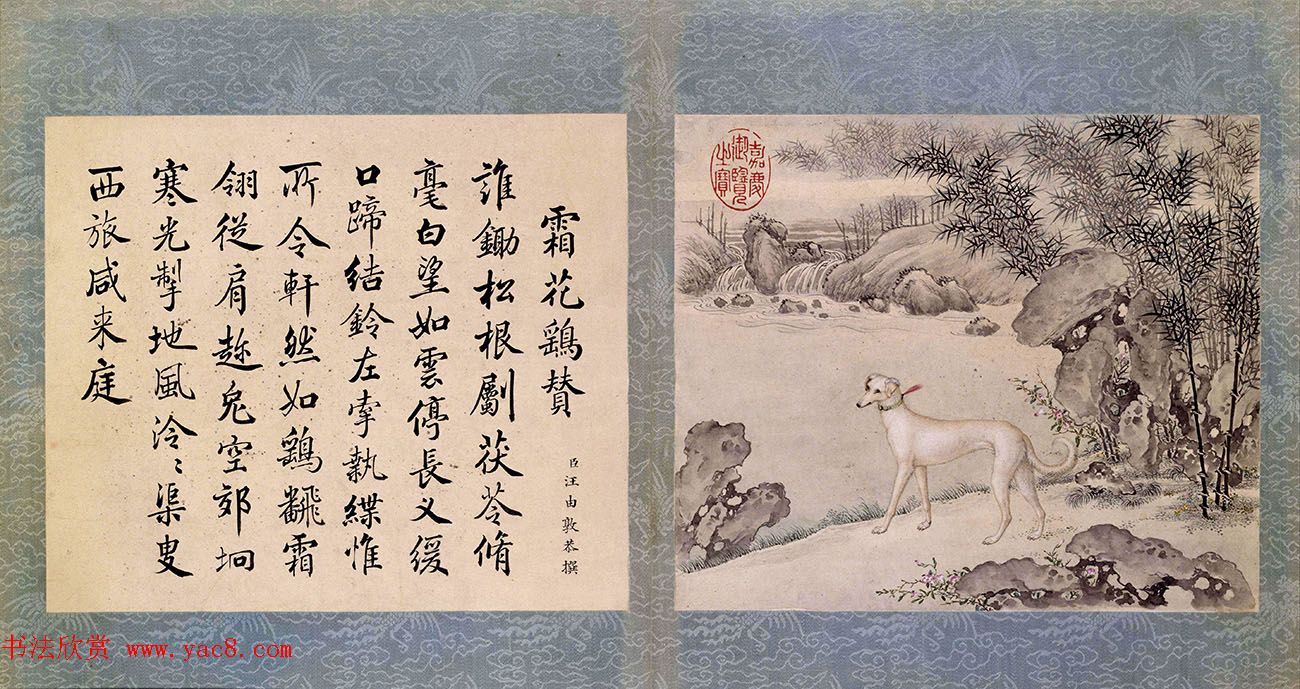 霜花鷂賛
臣汪由敦恭撰
誰鋤松根劚茯苓脩
毫白望如雲停長义緩
口蹄結鈴左牽執緤惟
所令軒然如鷂飜霜
翎從肩趂兔空郊坰
寒光掣地風泠〻渠叟
西旅咸来庭
嘉慶
御覽
之寶
书法欣赏 www.yac8.com